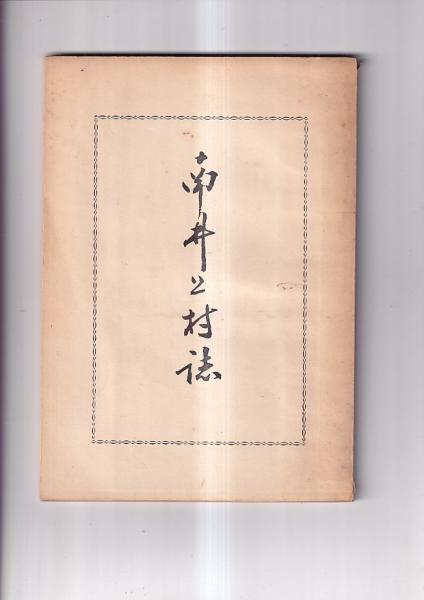 南井上村誌